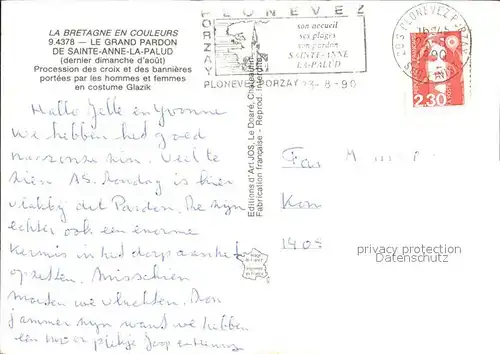 LA BRETAGNE EN COULEURS
9.4378 — LE GRAND PARDON
DE SAINTE-ANNE-LA-PALUD
(dernier dimanche d'août)
Procession des croix et des bannières
portées par les hommes et femmes
en costume Glazik
Hallo Jelle en Yvonne
we hebben het goed
naar onze zin. Veel te
zien AS. Zondag is hier
vlakbij dit Pardon. Ze zijn
echter ook een enorme
kermis in het dorp aan het
opzetten. Misschien
moeten we vluchten. Dan
jammer zijn want we hebben
een mooi plekje Joop en
Editions d'Art JOS, Le Doaré, Châteaulin
Fabrication française - Reprod. interdite
PLONEVEZ
PORZAY
son accueil
ses plages
son pardon
SAINTE-ANNE
LA-PALUD
PLONEVEZ-PORZAY 23-8-90
PLONEVEZ PORZAY
16H45
90
2,30
Fam
Kon
140
privacy protection
Datenschutz